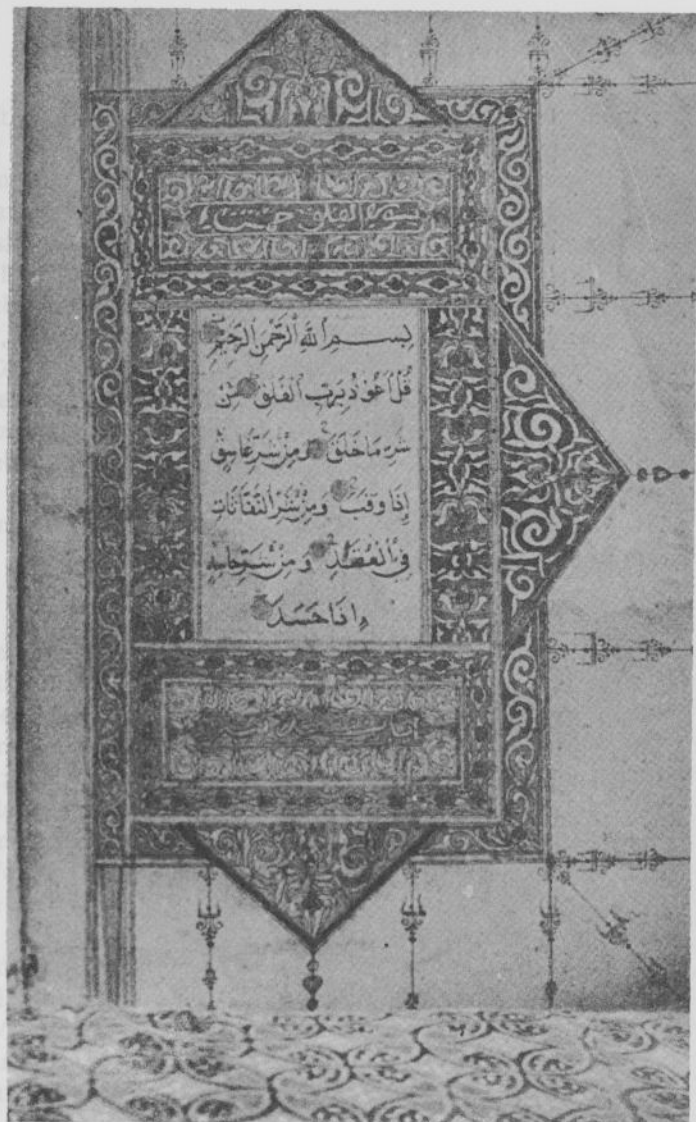 سورة الفلق خمس آيات
بِسْمِ اللَّهِ الرَّحْمَنِ الرَّحِيمِ
قُلْ أَعُوذُ بِرَبِّ الْفَلَقِ مِنْ
شَرِّ مَا خَلَقَ وَمِنْ شَرِّ غَاسِقٍ
إِذَا وَقَبَ وَمِنْ شَرِّ النَّفَّاثَاتِ
فِي الْعُقَدِ وَمِنْ شَرِّ حَاسِدٍ
إِذَا حَسَدَ